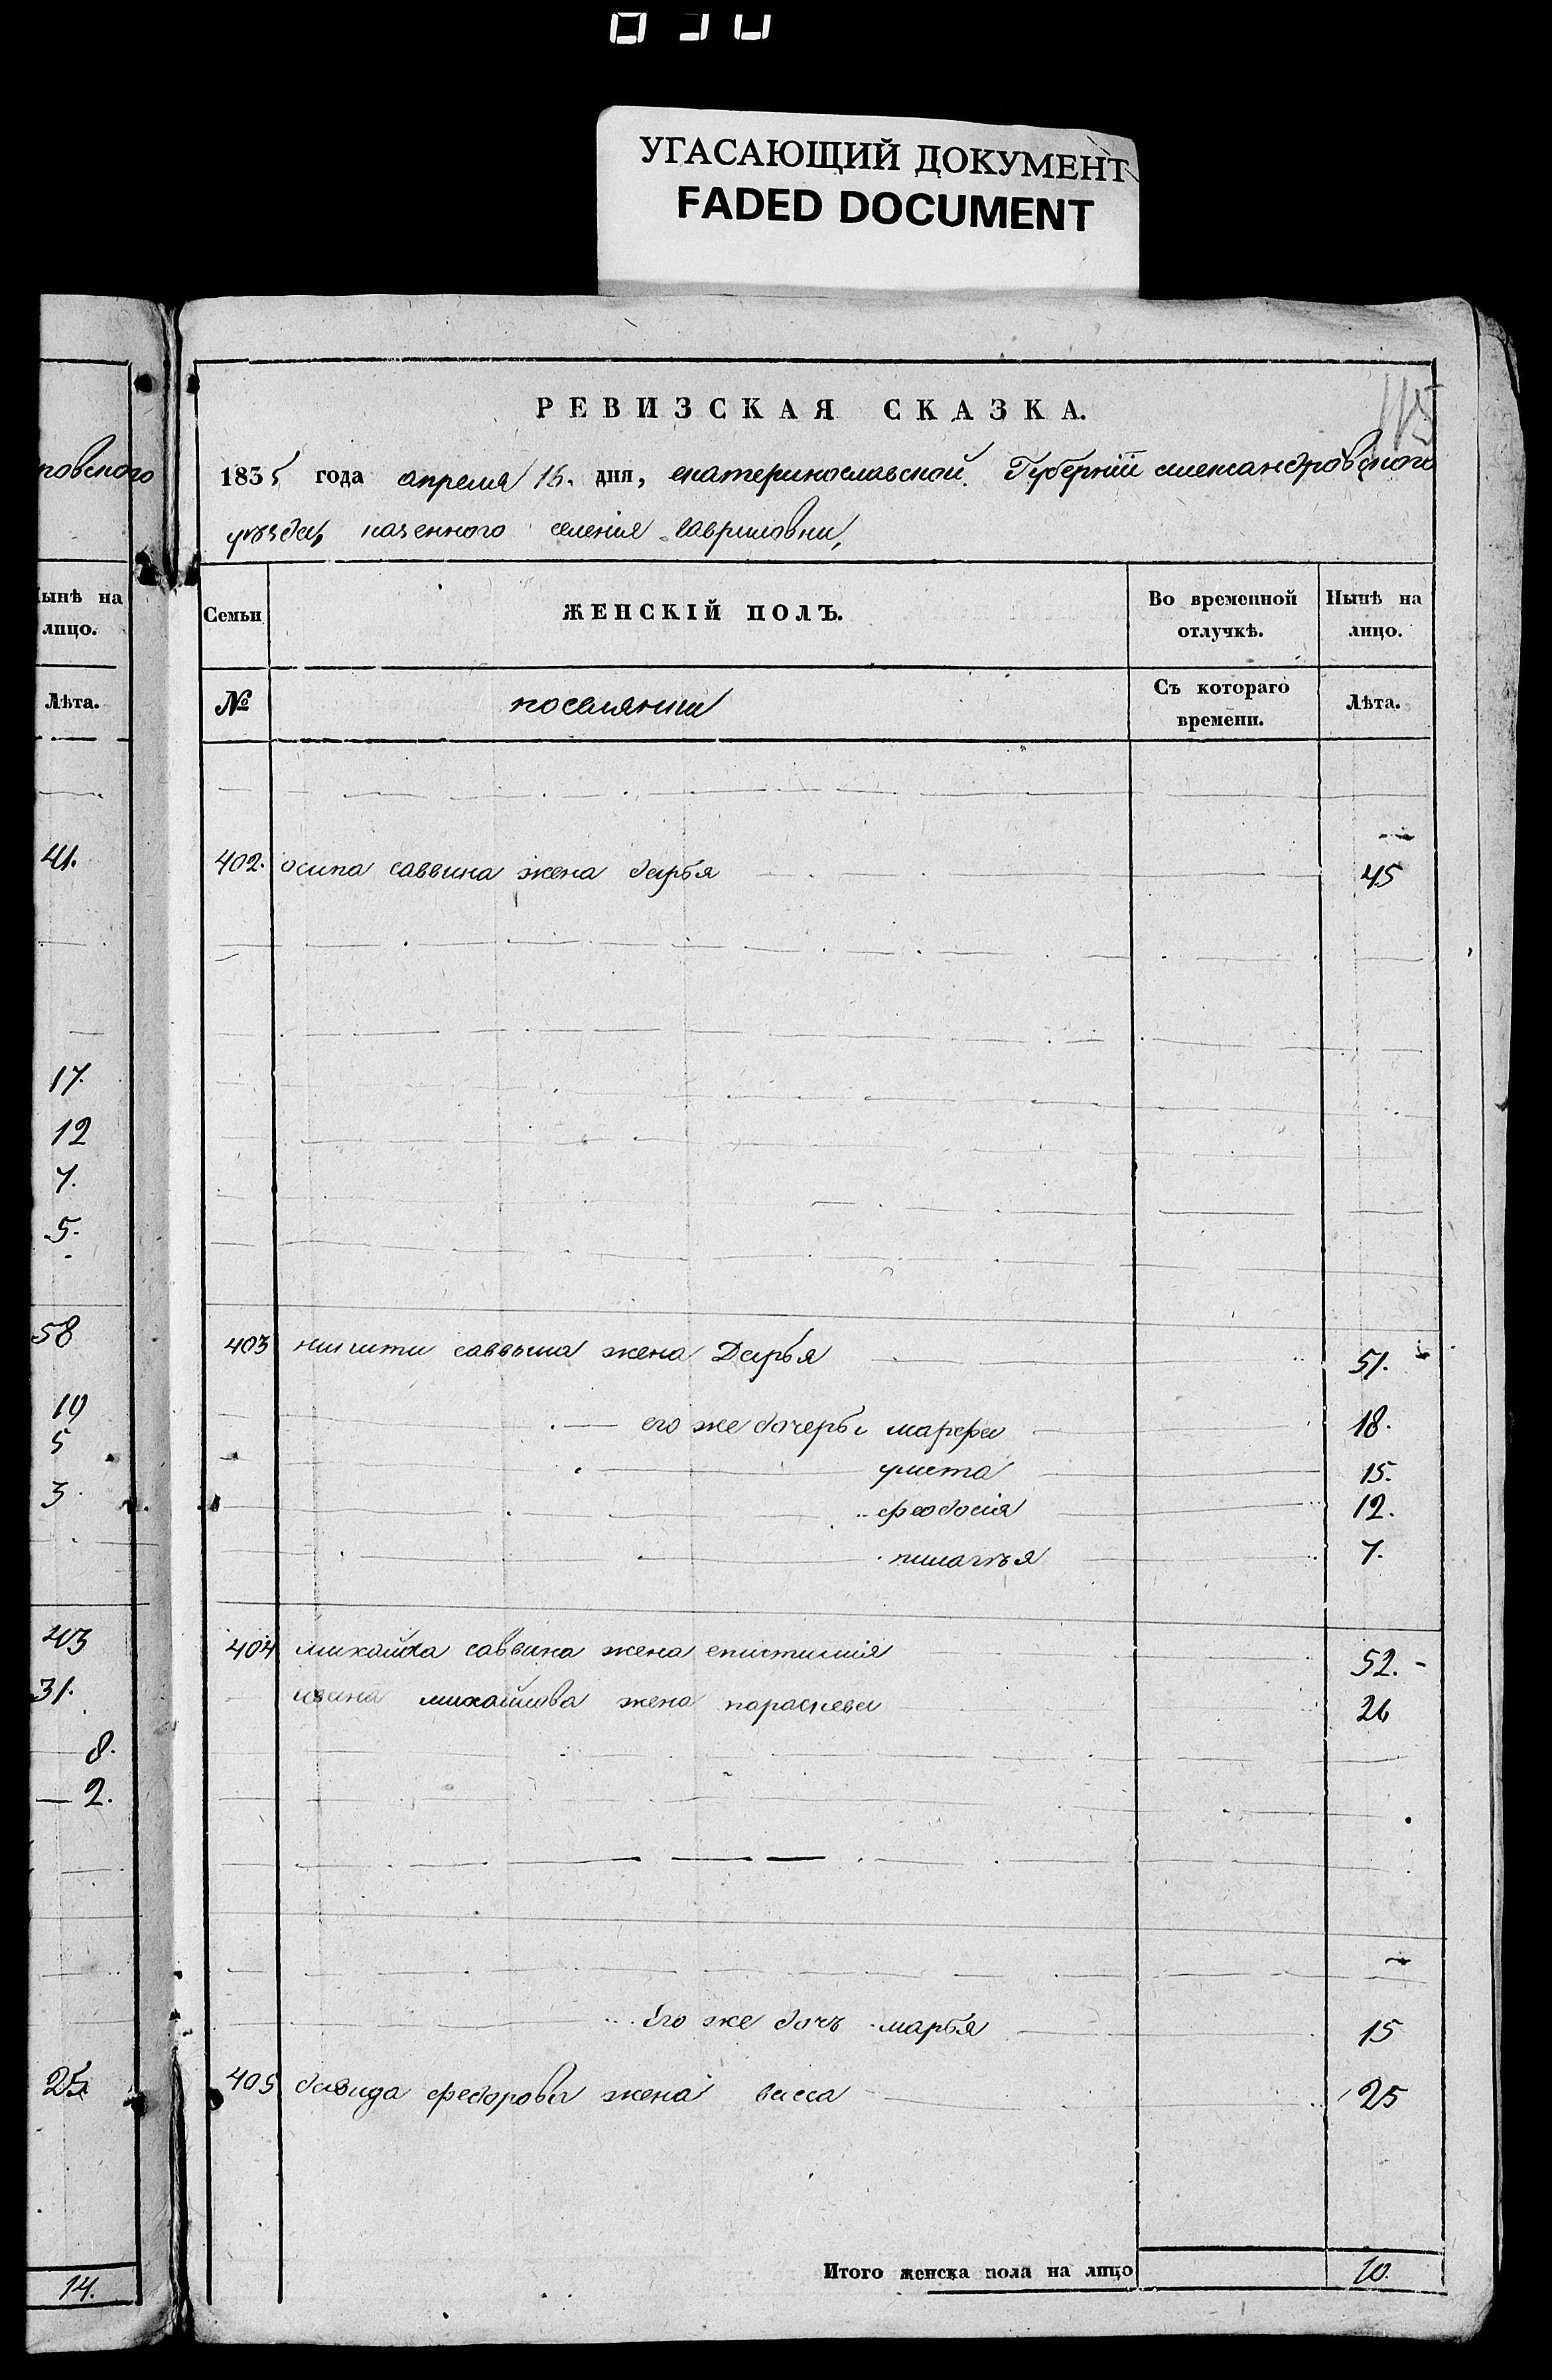 УГАСАЮЩИЙ ДОКУМЕНТ
FADED DOCUMENT
115
РЕВИЗСКАЯ СКАЗКА.
1835 года апреля 16. дня, екатеринославской Губернiи александровского
уезда, казенного селенiя Гавриловки,
Семьи
ЖЕНСКIЙ ПОЛЪ.
Во временной отлучкѣ.
Нынѣ на лицо.
№
поселянки
Съ котораго времени.
Лѣта.
402. осипа саввина жена дарья 45
403 никиты саввина жена Дарья 51.
его же дочери марфа 18.
улита 15.
феодосiя 12.
пелагея 7.
404 михайла саввина жена епистимiя 52.
ивана михайлова жена параскева 26
Его же дочь марья 15
405 давида федорова жена васса 25
Итого женска пола на лицо 10.
повского
Нынѣ на
лицо.
Лѣта.
41.
17.
12
7.
5.
58
10
5
3.
43
31.
8.
2.
25.
14.